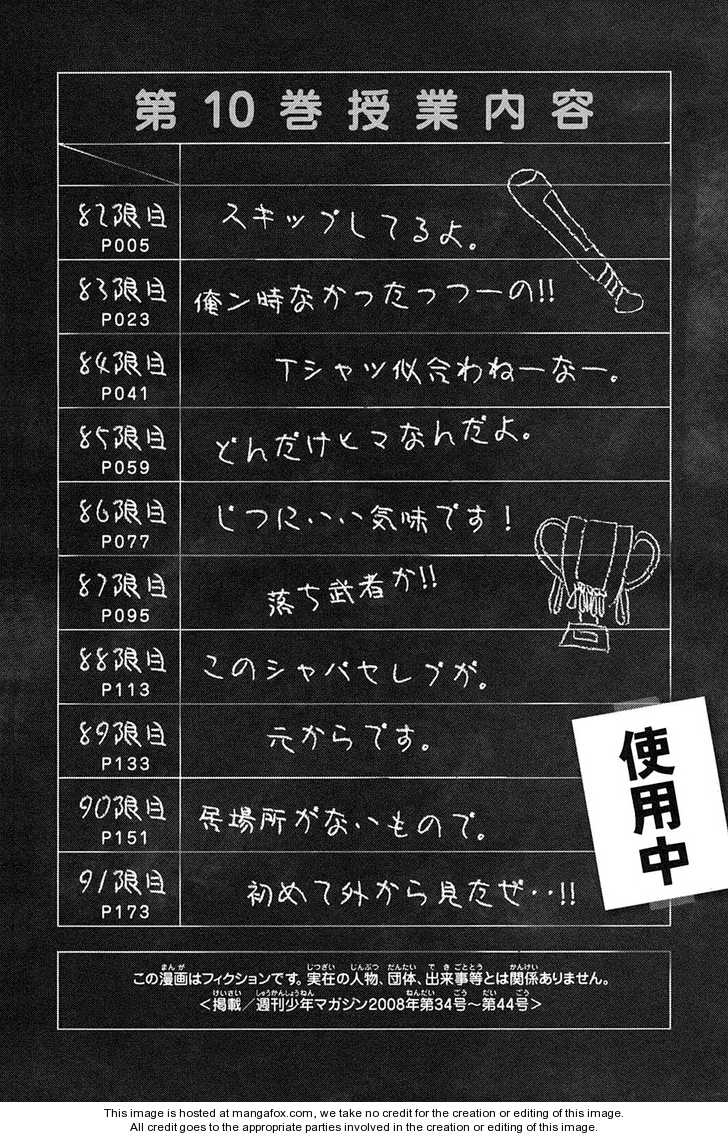 第10巻授業内容
82限目 スキップしてるよ。
P005
83限目 俺ン時なかったっつーの!!
P023
84限目 Tシャツ似合わねーなー。
P041
85限目 どんだけヒマなんだよ。
P059
86限目 じつにいい気味です!
P077
87限目 落ち武者か!!
P095
88限目 このシャバセレブが。
P113
89限目 元からです。
P133
90限目 居場所がないもので。
P151
91限目 初めて外から見たぜ‥!!
P173
使用中
この漫画はフィクションです。実在の人物、団体、出来事等とは関係ありません。
<掲載/週刊少年マガジン2008年第34号~第44号>
This image is hosted at mangafox.com, we take no credit for the creation or editing of this image.
All credit goes to the appropriate parties involved in the creation or editing of this image.